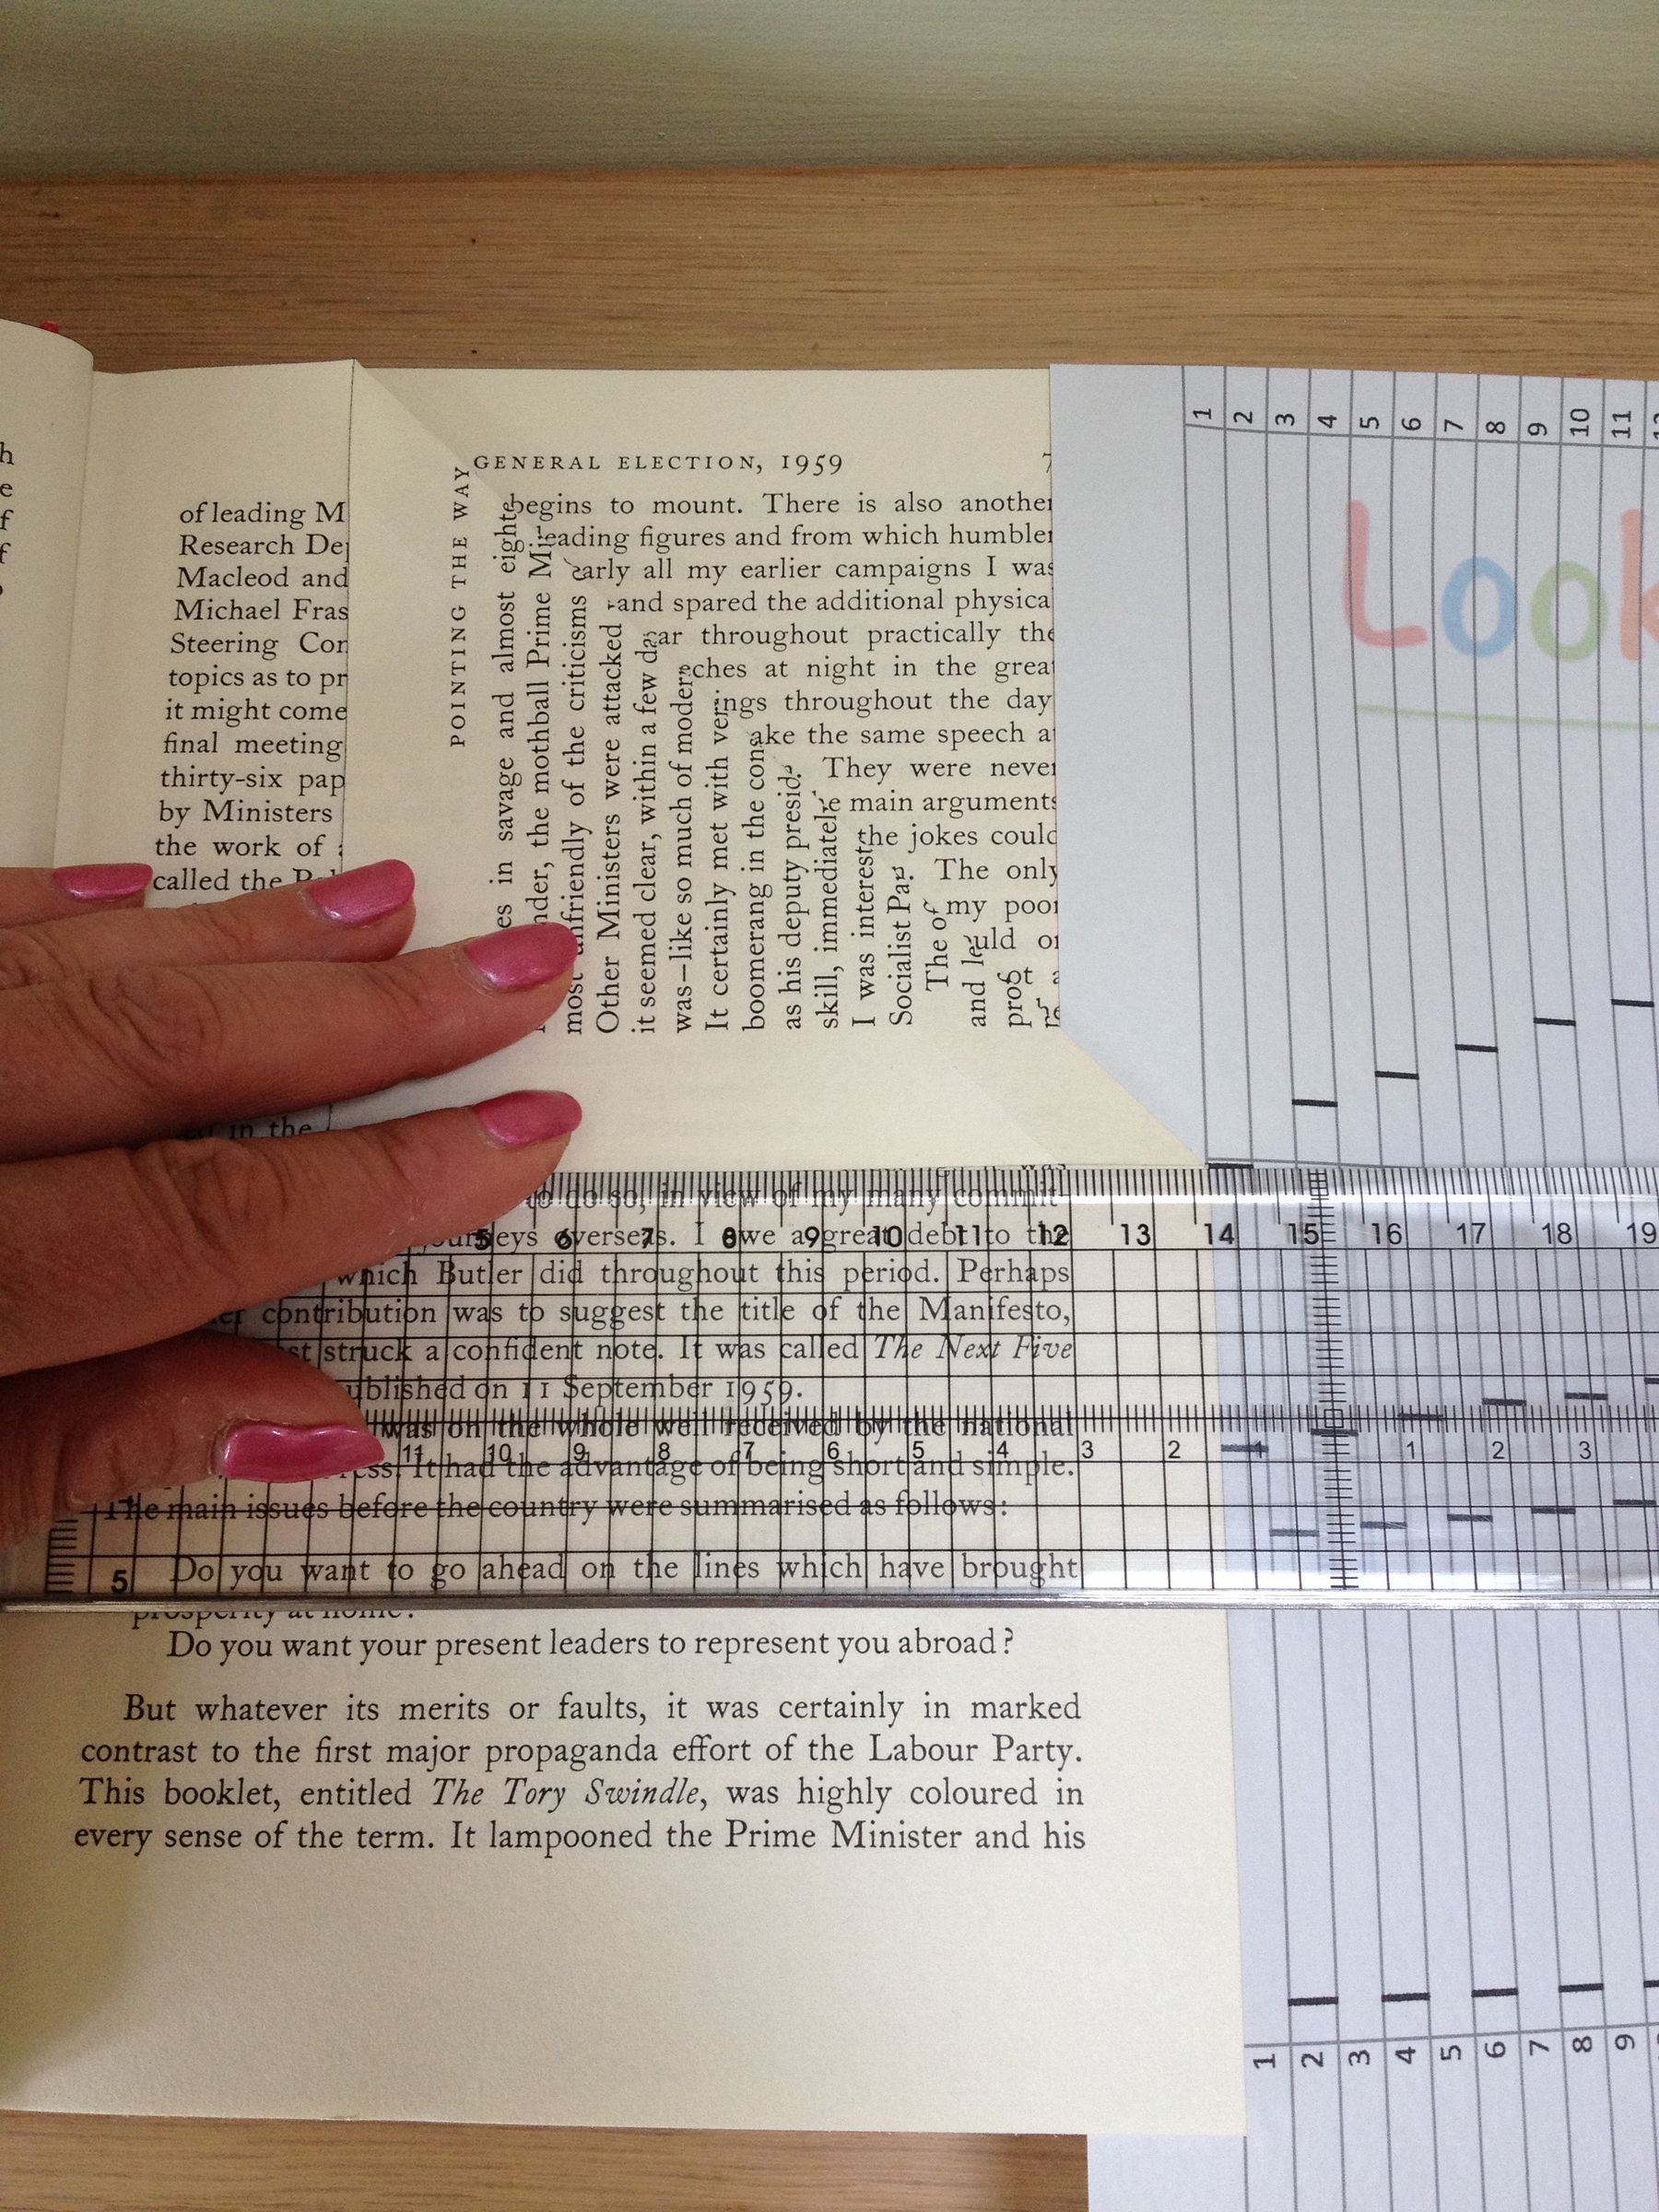 h
e
f
f
of leading M
Research De
Macleod and
Michael Fras
Steering Con
topics as to pr
it might come
final meeting
thirty-six pap
by Ministers
the work of
called the
in the
POINTING THE WAY
es in savage and almost eighte
nder, the mothball Prime Mi
most unfriendly of the criticisms
Other Ministers were attacked
it seemed clear, within a few da
was—like so much of moder
It certainly met with ver
boomerang in the con
as his deputy presid
skill, immediatel
I was interest
Socialist Pa
The of
and le
prof
GENERAL ELECTION, 1959 7
begins to mount. There is also another
leading figures and from which humbler
early all my earlier campaigns I was
and spared the additional physica
ar throughout practically the
eches at night in the grea
ings throughout the day
ake the same speech a
They were never
e main arguments
the jokes could
The only
my poor
uld or
t a
1 2 3 4 5 6 7 8 9 10 11 12
Look
to do so, in view of my many commit-
journeys overseas. I owe a great debt to the
which Butler did throughout this period. Perhaps
contribution was to suggest the title of the Manifesto,
st struck a confident note. It was called The Next Five
ublished on 11 September 1959.
was on the whole well received by the national
ress. It had the advantage of being short and simple.
The main issues before the country were summarised as follows:
Do you want to go ahead on the lines which have brought
prosperity at home?
Do you want your present leaders to represent you abroad?
But whatever its merits or faults, it was certainly in marked
contrast to the first major propaganda effort of the Labour Party.
This booklet, entitled The Tory Swindle, was highly coloured in
every sense of the term. It lampooned the Prime Minister and his
5 6 7 8 9 10 11 12 13 14 15 16 17 18 19
11 10 9 8 7 6 5 4 3 2 1 1 2 3
5
1 2 3 4 5 6 7 8 9